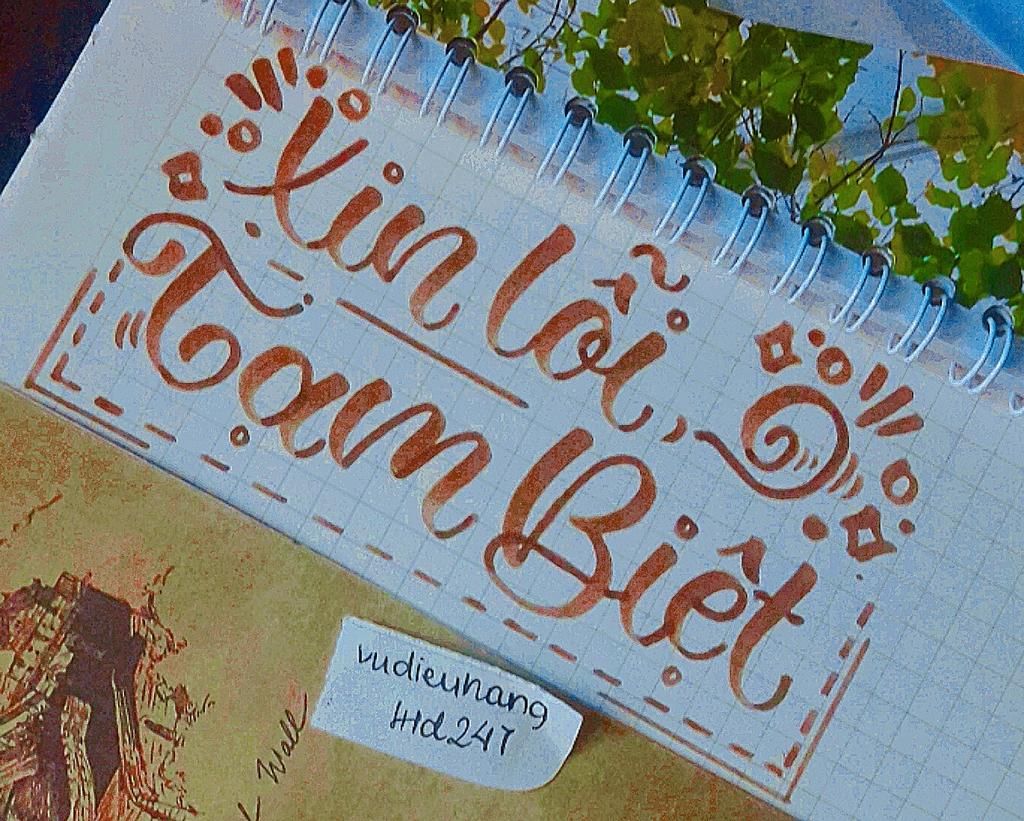 Xin lỗi,
Tạm Biệt
vudieuhang
Htd.247
Wall